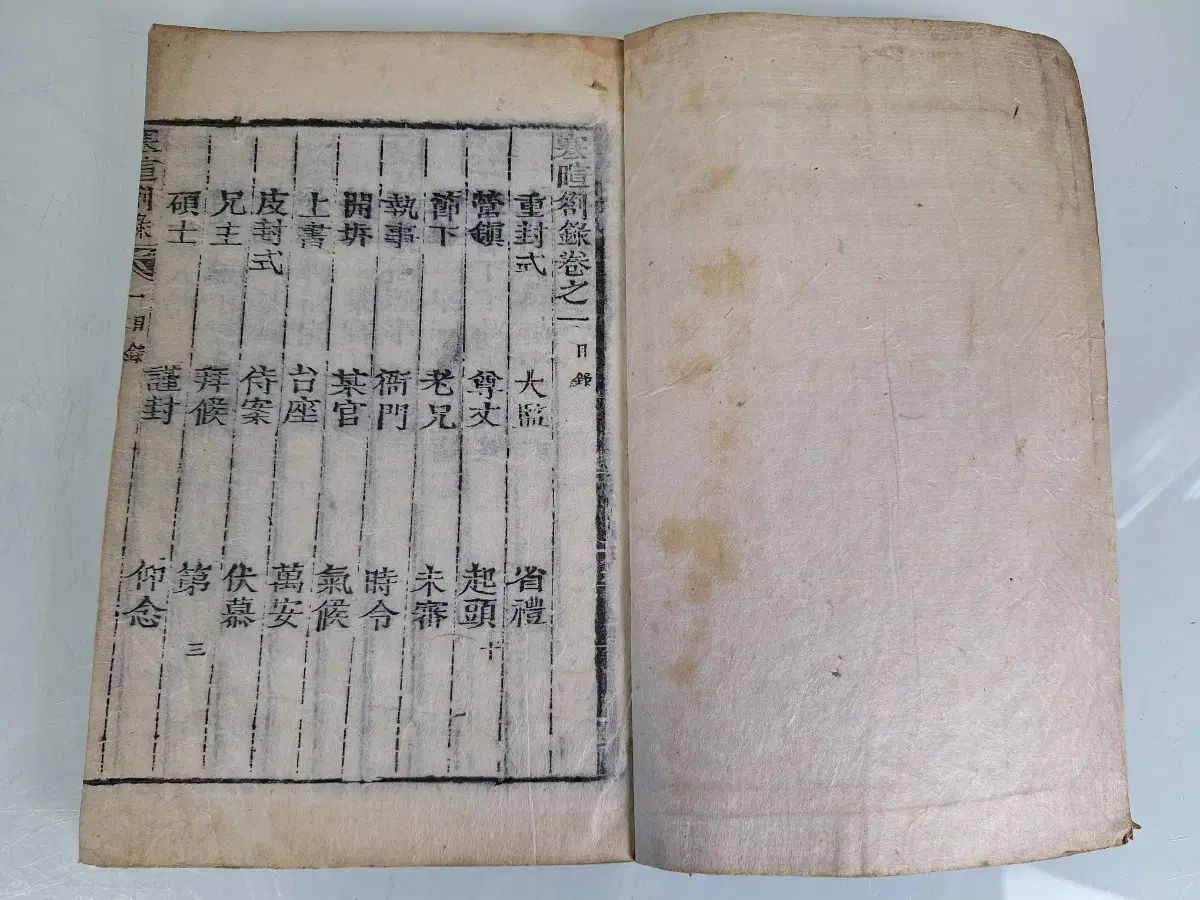 寒暄箚錄卷之一 目錄
重封式 大監 省禮
營鎭 尊丈 起頭 十
節下 老兄 未審
執事 衙門 時令
開坼 某官 氣候
上書 台座 萬安
皮封式 侍案 伏慕
兄主 拜候 第 三
碩士 謹封 仰念
寒暄箚錄 一 目錄